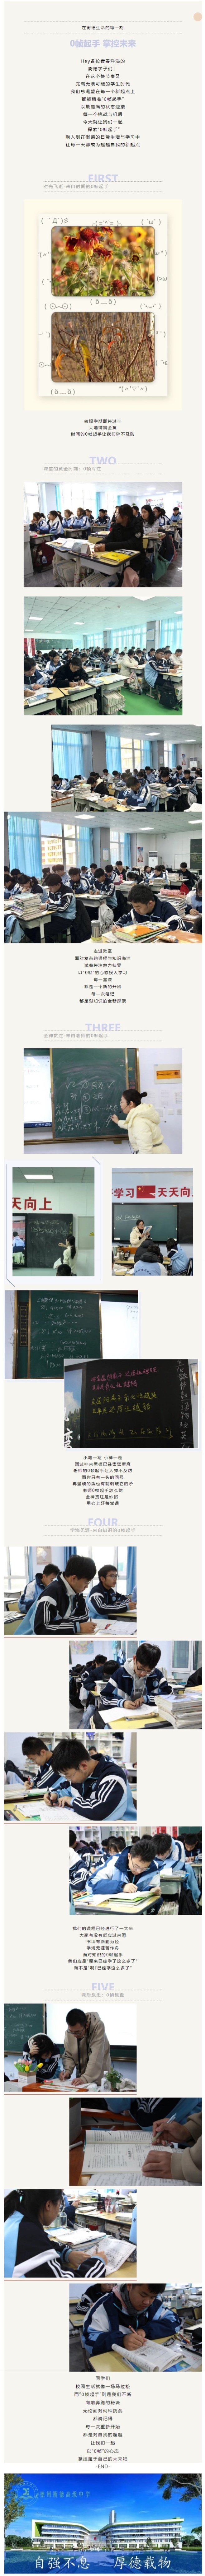 在衡德生活的每一刻
0帧起手 掌控未来
Hey各位青春洋溢的
衡德学子们!
在这个快节奏又
充满无限可能的学生时代
我们总渴望在每一个新起点上
都能精准"0帧起手"
以最饱满的状态迎接
每一个挑战与机遇
今天就让我们一起
探索"0帧起手"
融入到在衡德的日常生活与学习中
让每一天都成为超越自我的新起点
FIRST
时光飞逝·来自时间的0帧起手
转眼学期即将过半
大地铺满金黄
时间的0帧起手让我们猝不及防
TWO
课堂的黄金时刻:0帧专注
走进教室
面对复杂的课程与知识海洋
试着将注意力归零
以"0帧"的心态投入学习
每一堂课
都是一个新的开始
每一次笔记
都是对知识的全新探索
THREE
全神贯注·来自老师的0帧起手
天天向上
学习
天天向
小笔一写 小神一走
回过神来黑板已经密密麻麻
老师的0帧起手让人猝不及防
而你只有一头的问号
再坚硬的盾也有能刺破它的矛
老师0帧起手怎么防
全神贯注是妙招
用心上好每堂课
FOUR
学海无涯·来自知识的0帧起手
我们的课程已经进行了一大半
大家有没有反应过来呢
书山有路勤为径
学海无涯苦作舟
面对知识的0帧起手
我们应是"原来已经学了这么多了"
而不是"啊?已经学这么多了"
FIVE
课后反思:0帧复盘
同学们
校园生活就像一场马拉松
而"0帧起手"则是我们不断
向前奔跑的秘诀
无论面对何种挑战
都请记得
每一次重新开始
都是对自我的超越
让我们一起
以"0帧"的心态
掌控属于自己的未来吧
-END-
自强不息 厚德载物